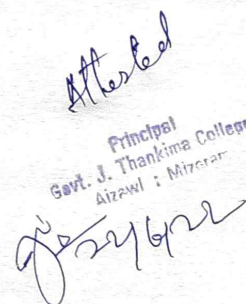 Attested
Principal
Govt. J. Thankima College
Aizawl : Mizoram